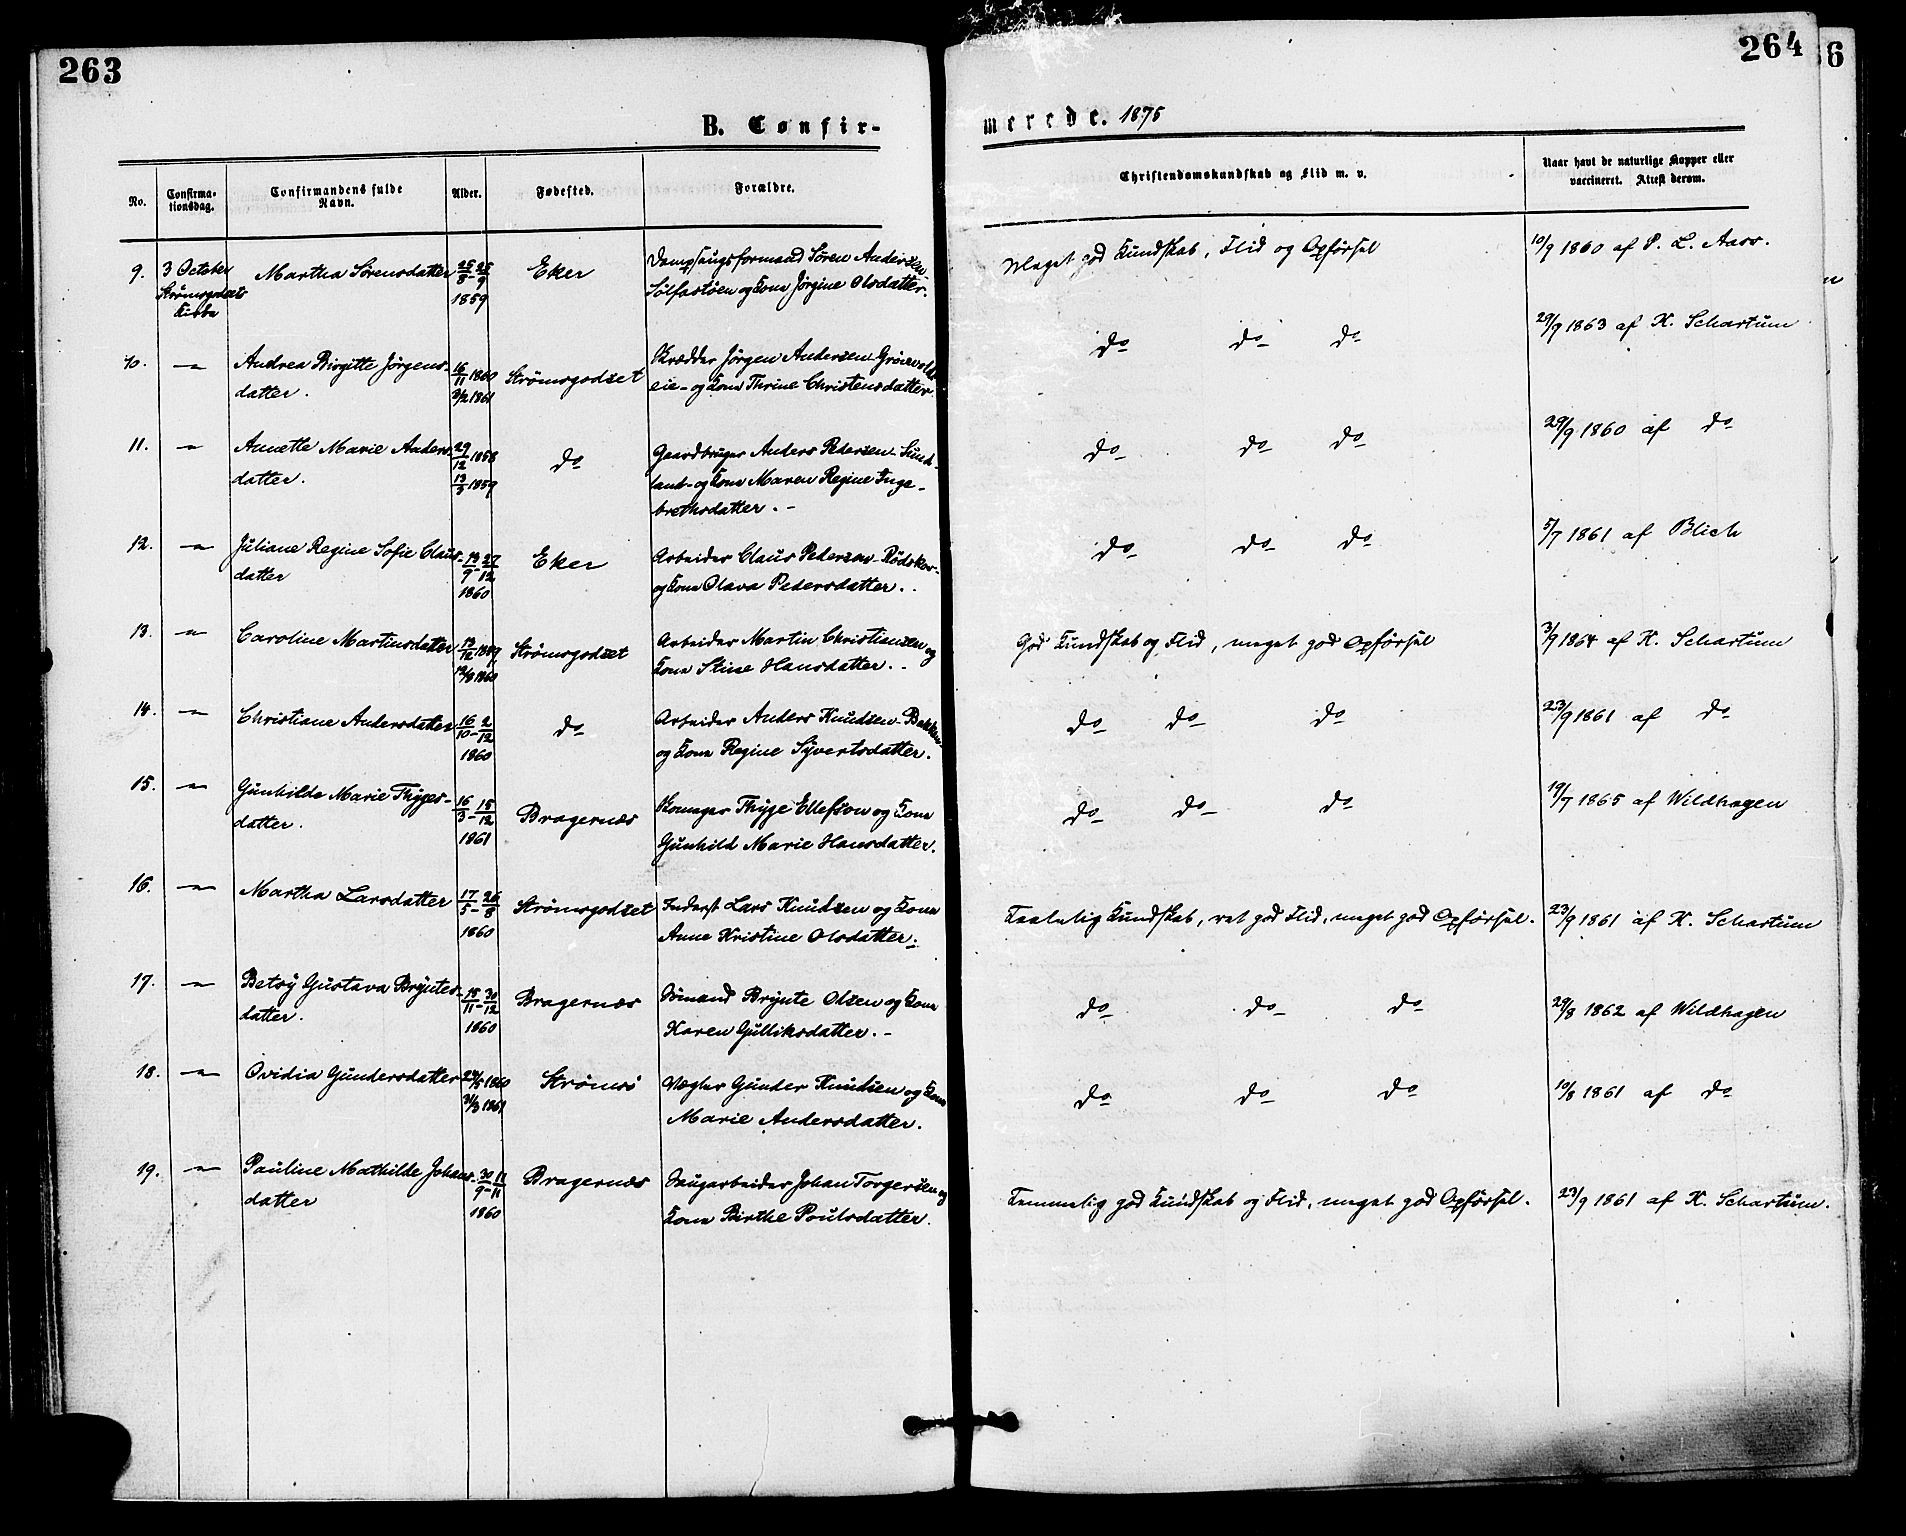 263
B. Confir-
No.
Confirma-
tionsdag.
Confirmandens fulde
Navn.
Alder.
Fødested.
Forældre.
9. 3 October Martha Sørensdatter 25/8 25/9 Eker Dampsaugsformand Søren Andersen-
Strømsgodsets 1859 Sølfastøen og Kone Jørgine Olsdatter.
Kirke
10. — Andrea Birgitte Jørgens- 16/11 1860 Strømsgodset Skrædder Jørgen Andersen
datter. 3/2 1861 eie- og Kone Thrine Christensdatter.
11. — Annette Marie Anders- 29/12 1858 do Gaardbruger Anders Pedersen Sund-
datter. 13/3 1859 land- og Kone Maren Regine Inge-
brethsdatter. -
12. — Juliane Regine Sofie Claus- 19/9 - 27/12 Eker Arbeider Claus Pedersen-Rødskov-
datter 1860 og Kone Olava Pedersdatter..
13. — Caroline Martinsdatter 13/12 1859 Strømsgodset Arbeider Martin Christiansen og
1860 Kone Stine Hansdatter..
14. — Christiane Andersdatter 16/10 - 2/12 do Arbeider Anders Knudsen-Bakken-
1860 og Kone Regine Syvertsdatter.
15. — Gunhilde Marie Thyges- 16/3 - 15/12 Bragernæs Thyge Ellefson og Kone
datter. 1861 Gunhild Marie Hansdatter.
16. — Martha Larsdatter 17/5 - 26/8 Strømsgodset Inderst Lars Knudsen og Kone
1860 Anne Kristine Olsdatter.
17. — Betsy Gustava Bryntes- 15/11 - 30/12 Bragernæs Sømand Brynte Olsen og Kone
datter. 1860 Karen Gulliksdatter. -
18. — Ovidia Gundersdatter 24/5 1860 Strømsø Vægter Gunder Knudsen og Kone
31/3 1861 Marie Andersdatter.
19. — Pauline Mathilde Johans- 30/9 - 11/11 Bragernæs Saugarbeider Johan Torgersen og
datter 1860 Kone Birthe Poulsdatter.
264
merede. 1875
Christendomskundskab og Flid m. v.
Naar havt de naturlige Kopper eller
vaccineret. Attest derom.
Meget god Kundskab, Flid og Opførsel 10/9 1860 af P. L. Aass.
do do do 29/9 1863 af K. Schartum
do do do 29/9 1860 af do
do do do 5/7 1861 af Blich
God Kundskab og Flid, meget god Opførsel 3/9 1864 af K. Schartum
do do do 23/9 1861 af do
do do do 19/7 1865 af Wildhagen
Taalelig Kundskab, ret god Flid, meget god Opførsel. 23/9 1861 af K. Schartum
do do do 29/8 1862 af Wildhagen
do do do 10/8 1861 af do
Temmelig god Kundskab og Flid, meget god Opførsel. 23/9 1861 af K. Schartum.
6